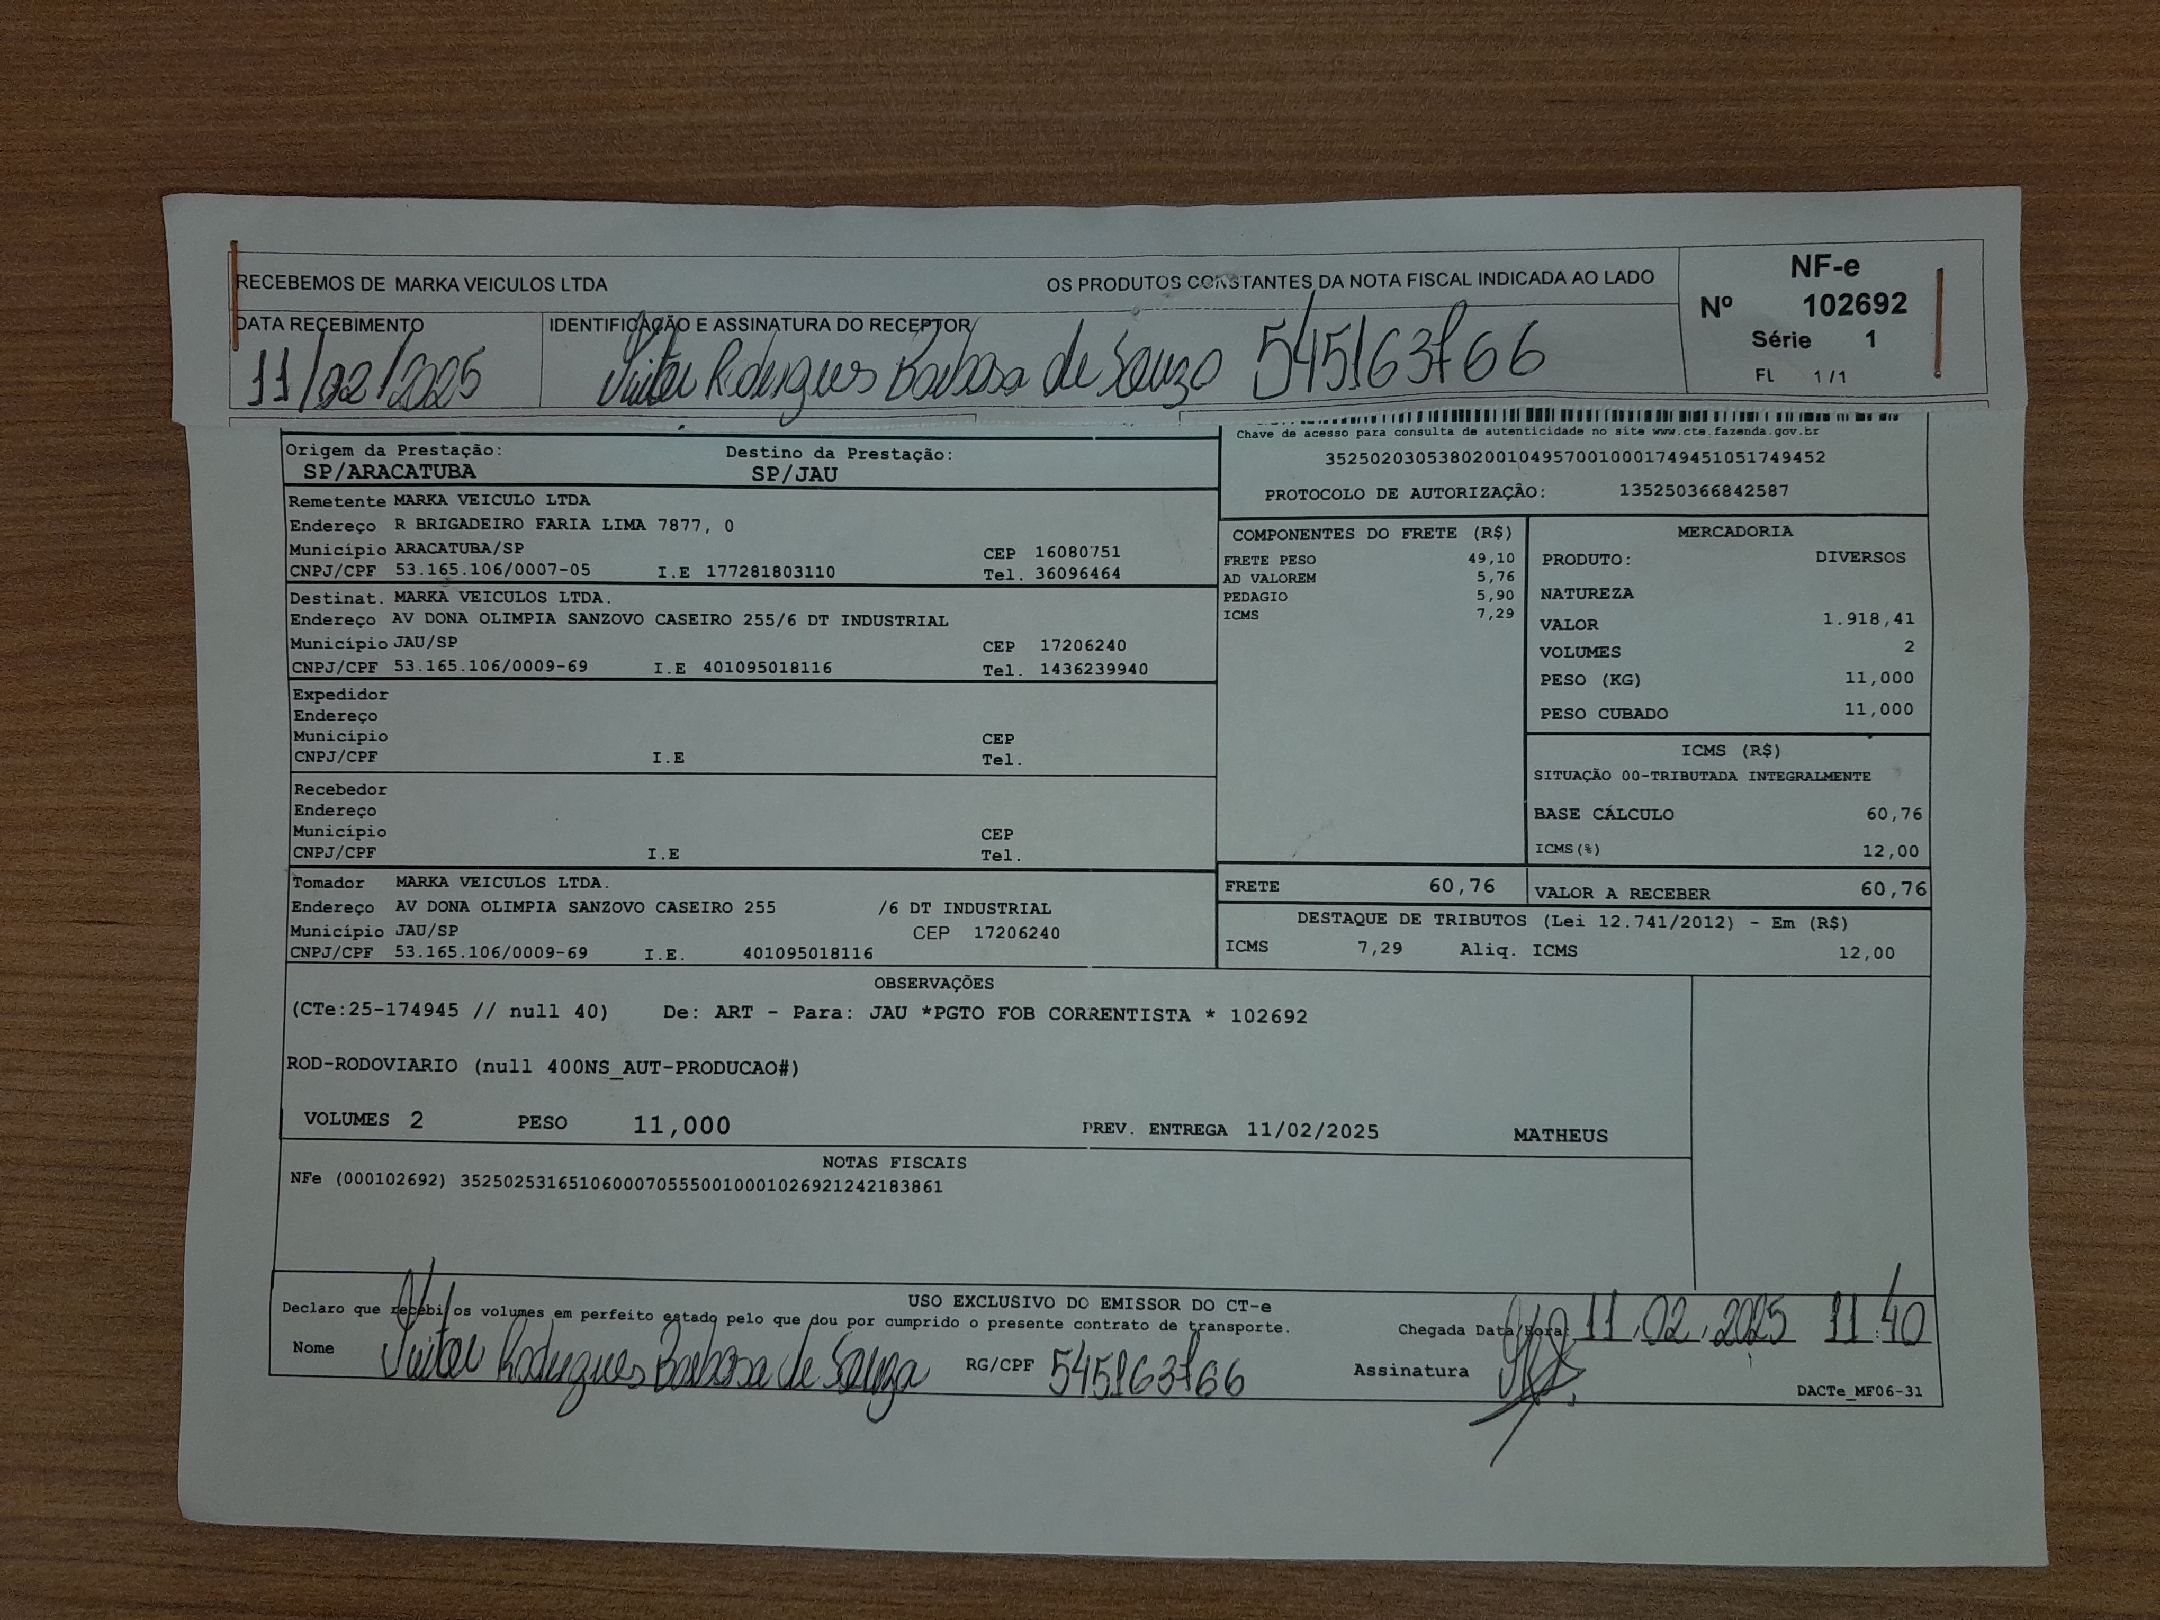 RECEBEMOS DE MARKA VEICULOS LTDA OS PRODUTOS CONSTANTES DA NOTA FISCAL INDICADA AO LADO
NF-e
Nº 102692
Série 1
FL 1/1
DATA RECEBIMENTO IDENTIFICAÇÃO E ASSINATURA DO RECEPTOR
11/02/2025 Rodrigues Barbosa de Souza
Chave de acesso para consulta de autenticidade no site www.cte.fazenda.gov.br
35250203053802001049570010001749451051749452
PROTOCOLO DE AUTORIZAÇÃO: 135250366842587
Origem da Prestação: Destino da Prestação:
SP/ARACATUBA SP/JAU
Remetente MARKA VEICULO LTDA
Endereço R BRIGADEIRO FARIA LIMA 7877, 0
Município ARACATUBA/SP CEP 16080751
CNPJ/CPF 53.165.106/0007-05 I.E 177281803110 Tel. 36096464
Destinat. MARKA VEICULOS LTDA.
Endereço AV DONA OLIMPIA SANZOVO CASEIRO 255/6 DT INDUSTRIAL
Município JAU/SP CEP 17206240
CNPJ/CPF 53.165.106/0009-69 I.E 401095018116 Tel. 1436239940
Expedidor
Endereço
Município CEP
CNPJ/CPF I.E Tel.
Recebedor
Endereço
Município CEP
CNPJ/CPF I.E Tel.
Tomador MARKA VEICULOS LTDA.
Endereço AV DONA OLIMPIA SANZOVO CASEIRO 255 /6 DT INDUSTRIAL
Município JAU/SP CEP 17206240
CNPJ/CPF 53.165.106/0009-69 I.E. 401095018116
COMPONENTES DO FRETE (R$)
FRETE PESO 49,10
AD VALOREM 5,76
PEDAGIO 5,90
ICMS 7,29
MERCADORIA
PRODUTO: DIVERSOS
NATUREZA
VALOR 1.918,41
VOLUMES 2
PESO (KG) 11,000
PESO CUBADO 11,000
ICMS (R$)
SITUAÇÃO 00-TRIBUTADA INTEGRALMENTE
BASE CÁLCULO 60,76
ICMS(%) 12,00
FRETE 60,76 VALOR A RECEBER 60,76
DESTAQUE DE TRIBUTOS (Lei 12.741/2012) - Em (R$)
ICMS 7,29 Aliq. ICMS 12,00
OBSERVAÇÕES
(CTe:25-174945 // null 40) De: ART - Para: JAU *PGTO FOB CORRENTISTA * 102692
ROD-RODOVIARIO (null 400NS_AUT-PRODUCAO#)
VOLUMES 2 PESO 11,000 PREV. ENTREGA 11/02/2025 MATHEUS
NOTAS FISCAIS
NFe (000102692) 35250253165106000705550010001026921242183861
USO EXCLUSIVO DO EMISSOR DO CT-e
Declaro que recebi os volumes em perfeito estado pelo que dou por cumprido o presente contrato de transporte.
Chegada Data/Hora: 11.02.2025 11:40
Nome Rodrigues Barbosa de Souza RG/CPF Assinatura
DACTe_MF06-31